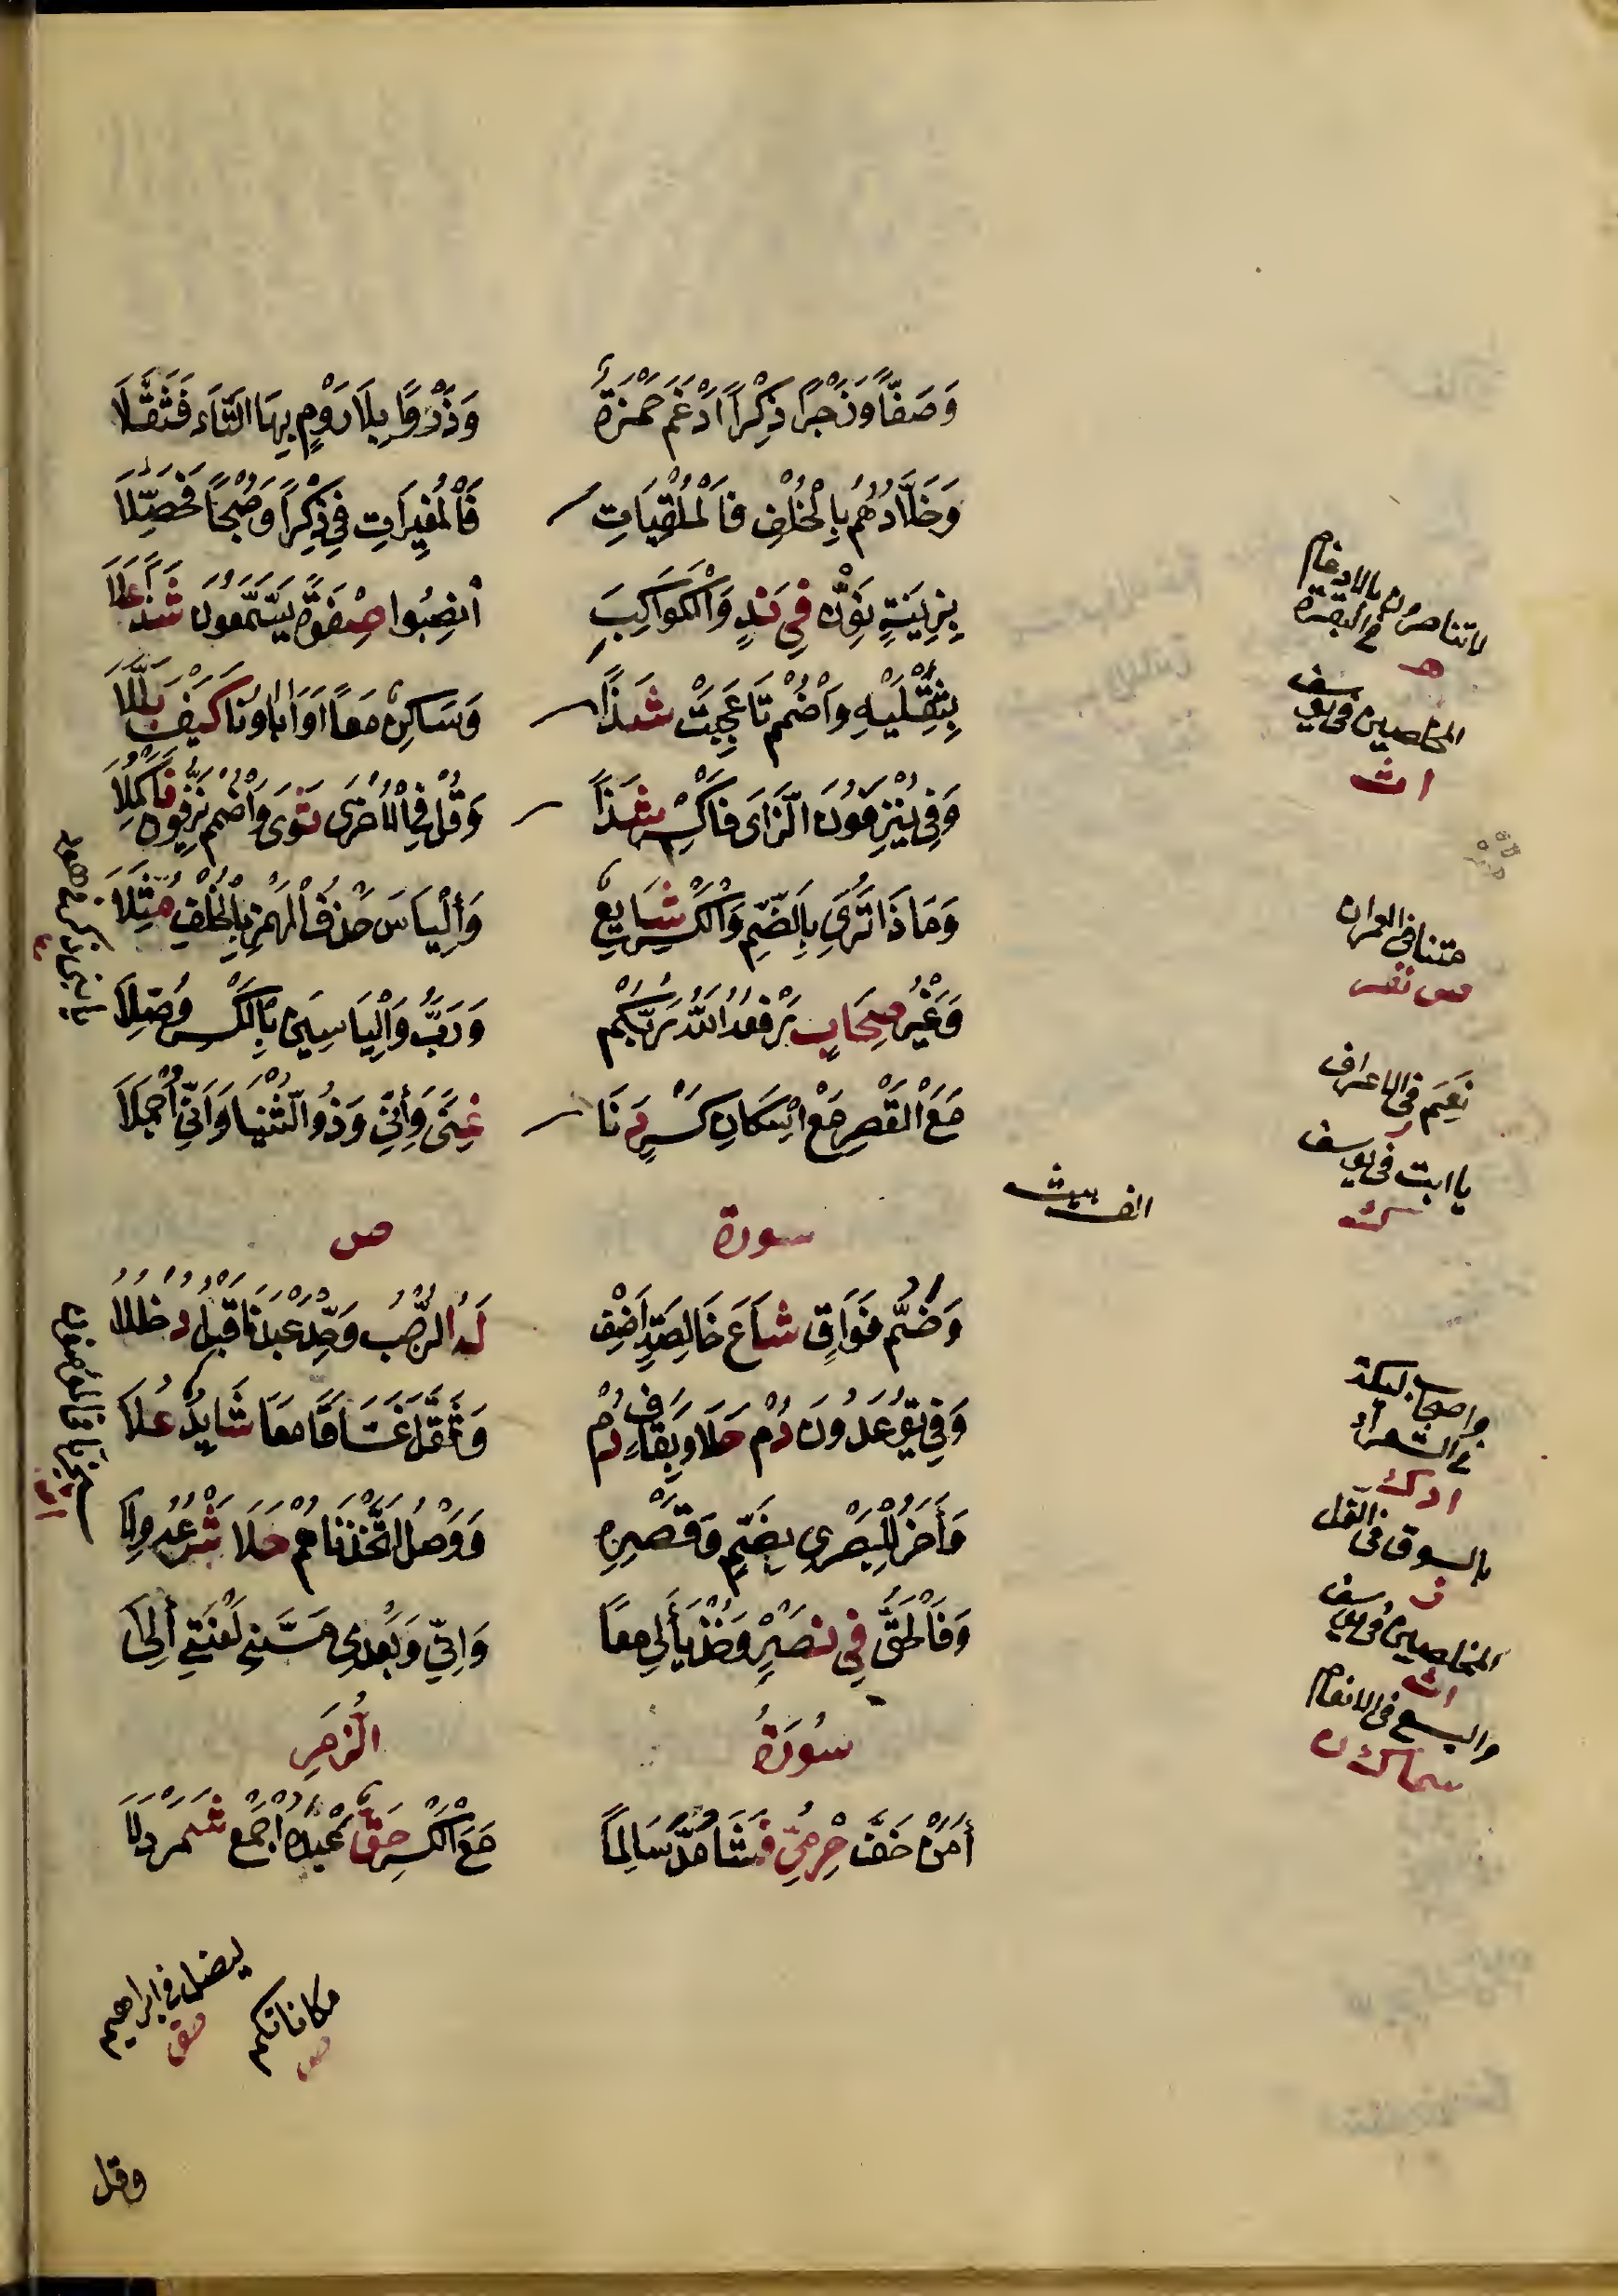 وَصَفًّا وَزَجْرًا ذِكْرًا ادْغَمَ حَمْزَةٌ وَذَرْوًا بِلَا رَوْمٍ بِهَا التَّاءَ فَثَقَّلَا
وَخَلَّادُهُمْ بِالْخُلْفِ فَالْمُلْقِيَاتِ فَالْمُغِيرَاتِ فِي ذِكْرًا وَصُبْحًا فَحَصِّلَا
بِزِينَةِ نَوِّنْ فِي نَدٍ وَالْكَوَاكِبَ انْصِبُوا صِفْوَةً يَسَّمَّعُونَ شَذًا عَلَا
بِثِقْلَيْهِ وَاضْمُمْ تَا عَجِبْتَ شَذًا وَسَاكِنٌ مَعًا اَوَ آبَاؤُنَا كَيْفَ بَلَّلَا
وَفِي يُنْزِفُونَ الزَّايَ فَاكْسِرْ شَذًا وَقُلْ فِي الْاُخْرَى ثَوَى وَاضْمُمْ يَزِفُّونَ فَاكْمُلَا
وَمَاذَا تُرِي بِالضَّمِّ وَالْكَسْرِ شَايِعٌ وَإِلْيَاسَ حَذْفُ الْهَمْزِ بِالْخُلْفِ مُثِّلَا
وَغَيْرُ صِحَابٍ رَفْعُهُ اللهُ رَبُّكُمْ وَرَبُّ وَإِلْيَاسِينَ بِالْكَسْرِ وُصِّلَا
مَعَ الْقَصْرِ مَعْ اِسْكَانِ كَسْرٍ دَنَا غِنًى وَإِنِّي وَذُو الثُّنْيَا وَأَنِّي أُجْمِلَا
سورة ص
وَضُمَّ فَوَاقٍ شَاعَ خَالِصَةٍ اَضِفْ لَهُ الرُّحْبُ وَحِّدْ عَبْدَنَا قَبْلُ دُخْلُلَا
وَفِي يُوعَدُونَ دُمْ حُلًا وَبِقَافَ دُمْ وَثَقَّلَ غَسَّاقًا مَعًا شَايِدٌ عُلَا
وَأُخَرُ لِلْبَصْرِي بِضَمٍّ وَقَصْرِهِ وَوَصْلُ اتَّخَذْنَاهُمْ حَلَا شَرْعُهُ وِلَا
وَفَالْحَقُّ فِي نَصْرٍ وَخُذْ يَاءَ لِي مَعًا وَاِنِّي وَبَعْدِي مَسَّنِي لَعْنَتِي إِلَى
سُورَةُ الزُّمَرِ
أَمَنْ خَفَّ حِرْمِيٌّ فَشَا مَدَّ سَالِمًا مَعَ الْكَسْرِ حَقٌّ عَبْدَهُ اجْمَعْ شَمَرْدَلَا
لاتناصرون بالادغام
في البقرة
هـ
المخلصين في يوسف
اث
متنا في العمران
نفر
نعم في الاعراف
ر
ياابت في يوسف
ك
الف بيت
واصحاب ليكة
في الشعراء
ادك
بالسوق في النمل
ز
المخلصين في يوسف
اث
واليسع في الانعام
سماك ن
يابني في هود
ع
سخريا في المؤمنون
ليضل في ابراهيم
حق
مكاناتكم
ص
وقل